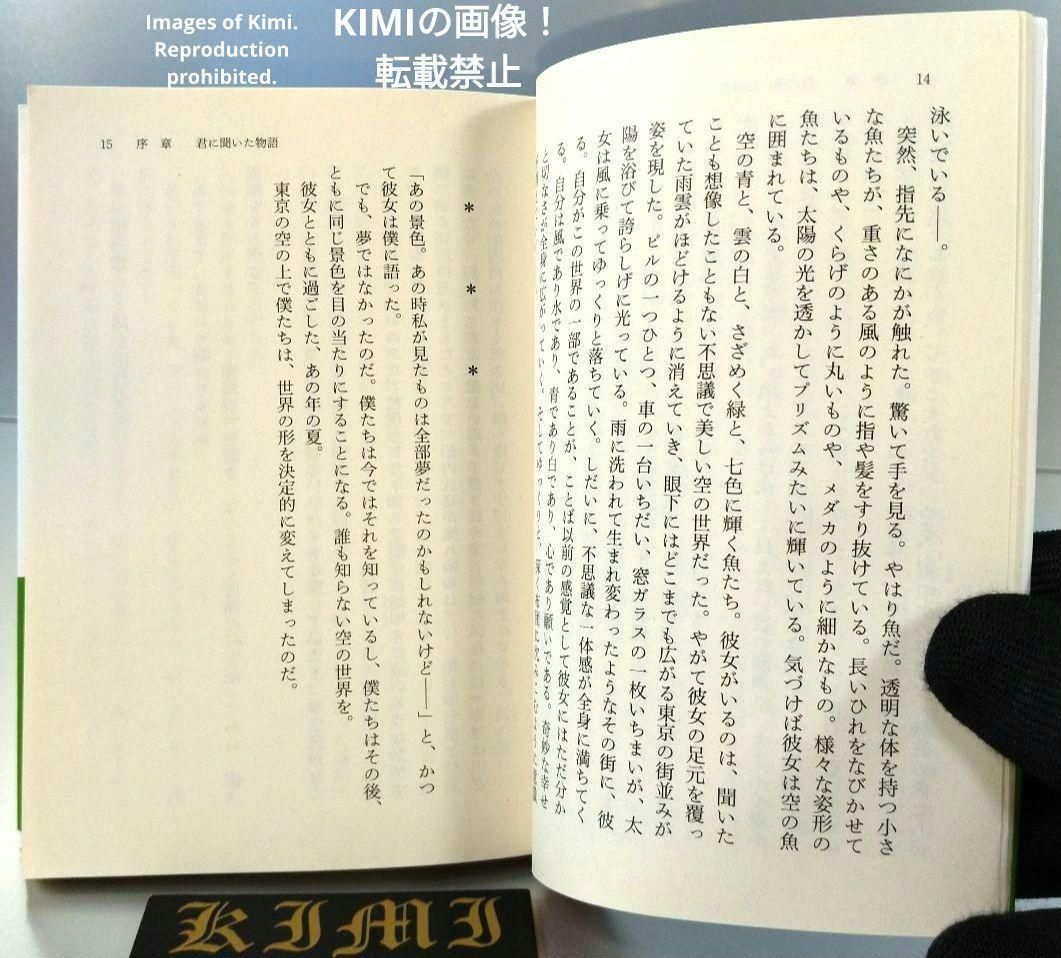 Images of Kimi.
Reproduction
prohibited.
KIMIの画像！
転載禁止
14
泳いでいる――。
突然、指先になにかが触れた。驚いて手を見る。やはり魚だ。透明な体を持つ小さ
な魚たちが、重さのある風のように指や髪をすり抜けている。長いひれをなびかせて
いるものや、くらげのように丸いものや、メダカのように細かなもの。様々な姿形の
魚たちは、太陽の光を透かしてプリズムみたいに輝いている。気づけば彼女は空の魚
に囲まれている。
空の青と、雲の白と、さざめく緑と、七色に輝く魚たち。彼女がいるのは、聞いた
ことも想像したこともない不思議で美しい空の世界だった。やがて彼女の足元を覆っ
ていた雨雲がほどけるように消えていき、眼下にはどこまでも広がる東京の街並みが
姿を現した。ビルの一つひとつ、車の一台いちだい、窓ガラスの一枚いちまいが、太
陽を浴びて誇らしげに光っている。雨に洗われて生まれ変わったようなその街に、彼
女は風に乗ってゆっくりと落ちていく。しだいに、不思議な一体感が全身に満ちてく
る。自分がこの世界の一部であることが、ことば以前の感覚として彼女にはただ分か
る。自分は風であり水であり、青であり白であり、心であり願いである。奇妙な幸せ
と切なさが全身に広がっていく。そしてゆっくりと、深く
15 序章 君に聞いた物語
＊ ＊ ＊
「あの景色。あの時私が見たものは全部夢だったのかもしれないけど――」と、かつ
て彼女は僕に語った。
でも、夢ではなかったのだ。僕たちは今ではそれを知っているし、僕たちはその後、
ともに同じ景色を目の当たりにすることになる。誰も知らない空の世界を。
彼女とともに過ごした、あの年の夏。
東京の空の上で僕たちは、世界の形を決定的に変えてしまったのだ。
KIMI